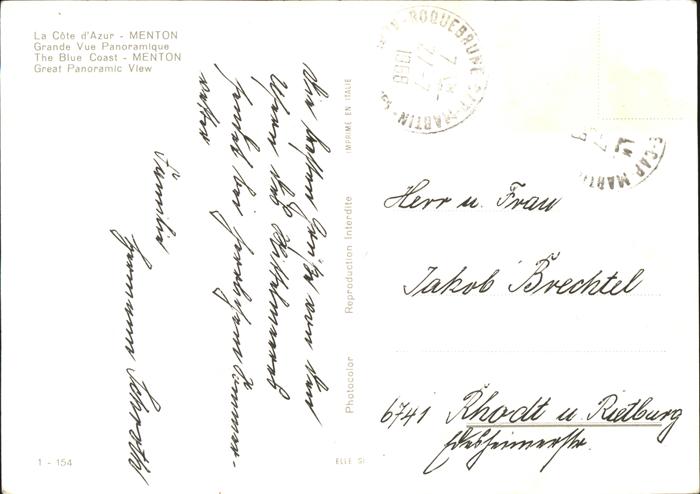 La Côte d'Azur - MENTON
Grande Vue Panoramique
The Blue Coast - MENTON
Great Panoramic View
Die besten Grüße von der
sendet bei herrlichem Sommer-
wetter
Familie
Hermann
IMPRIMÉ EN ITALIE
Reproduction Interdite
Photocolor
ROQUEBRUNE CAP-MARTIN
1968
CAP MARTIN
Herr u. Frau
Jakob Brechtel
6741 Rhodt u. Rietburg
Edesheimerstr.
1 - 154
ELLE SI